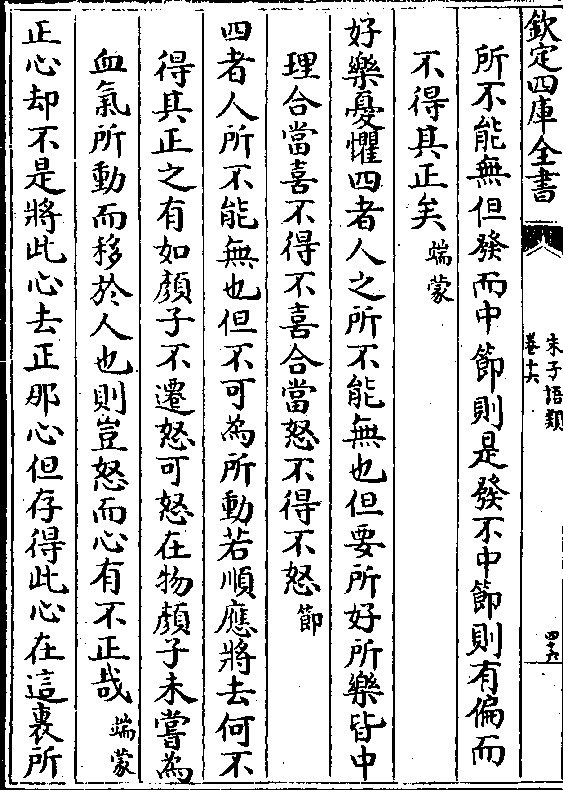 欽定四庫全書
朱子語類
卷十六
四十六
所不能無但發而中節則是發不中節則有偏而
不得其正矣端蒙
好樂憂懼四者人之所不能無也但要所好所樂皆中
理合當喜不得不喜合當怒不得不怒節
四者人所不能無也但不可為所動若順應將去何不
得其正之有如顏子不遷怒可怒在物顏子未嘗為
血氣所動而移於人也則豈怒而心有不正哉端蒙
正心却不是將此心去正那心但存得此心在這裏所